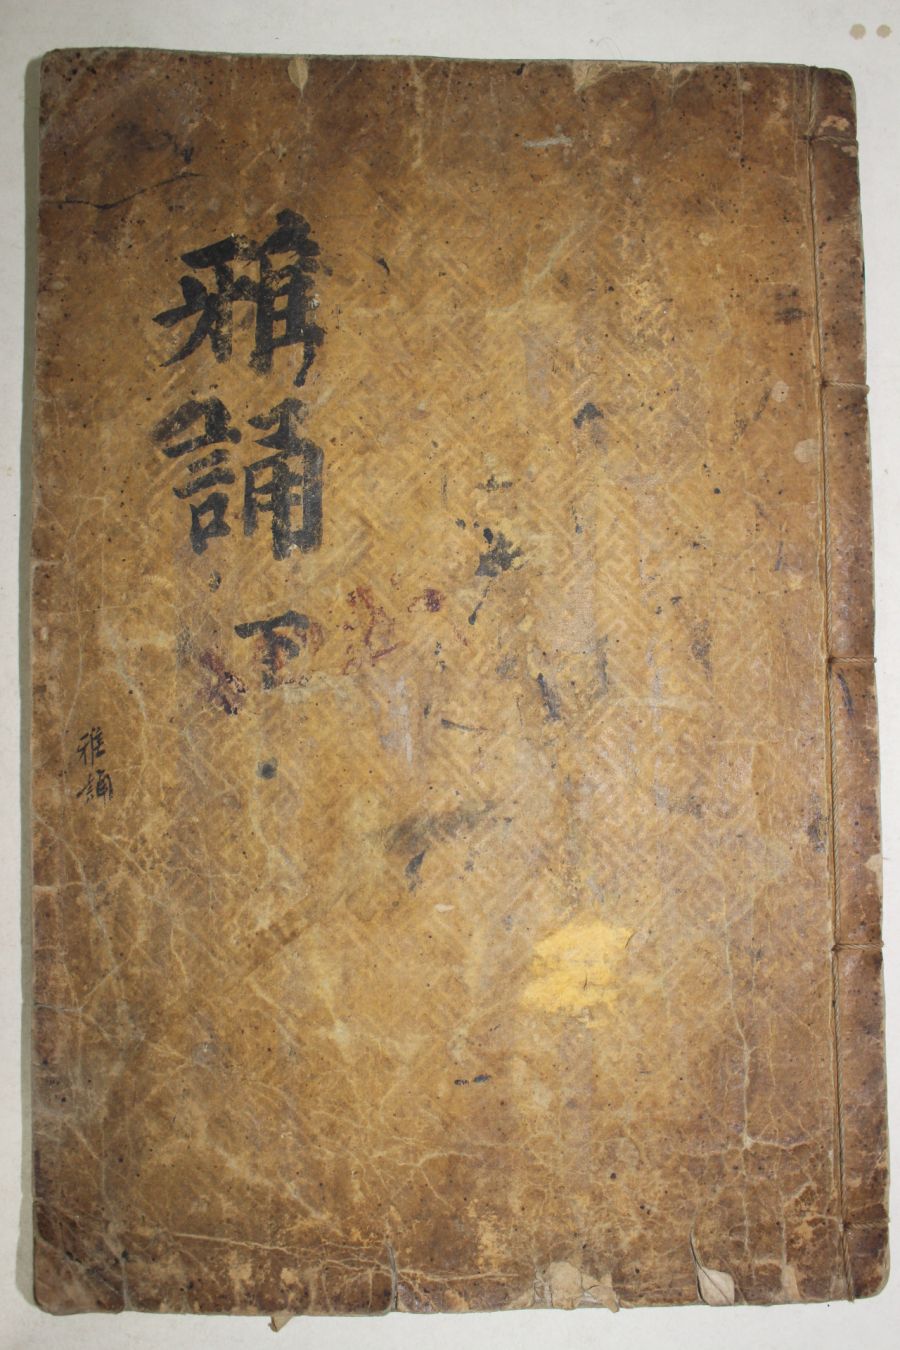 雅誦
下
雅誦